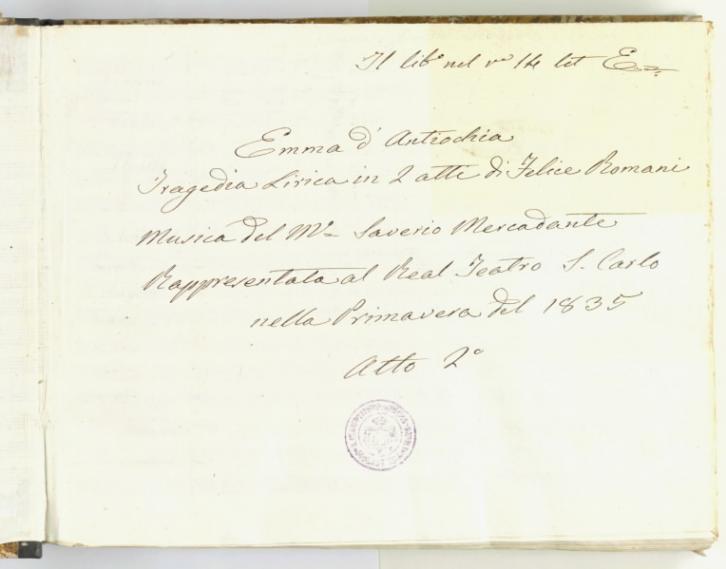 Il lib.° nel v.e 14 let E
Emma d' Antiochia
Tragedia Lirica in 2 atti di Felice Romani
Musica del M.° Saverio Mercadante
Rappresentata al Real Teatro S. Carlo
nella Primavera del 1835
Atto 2°